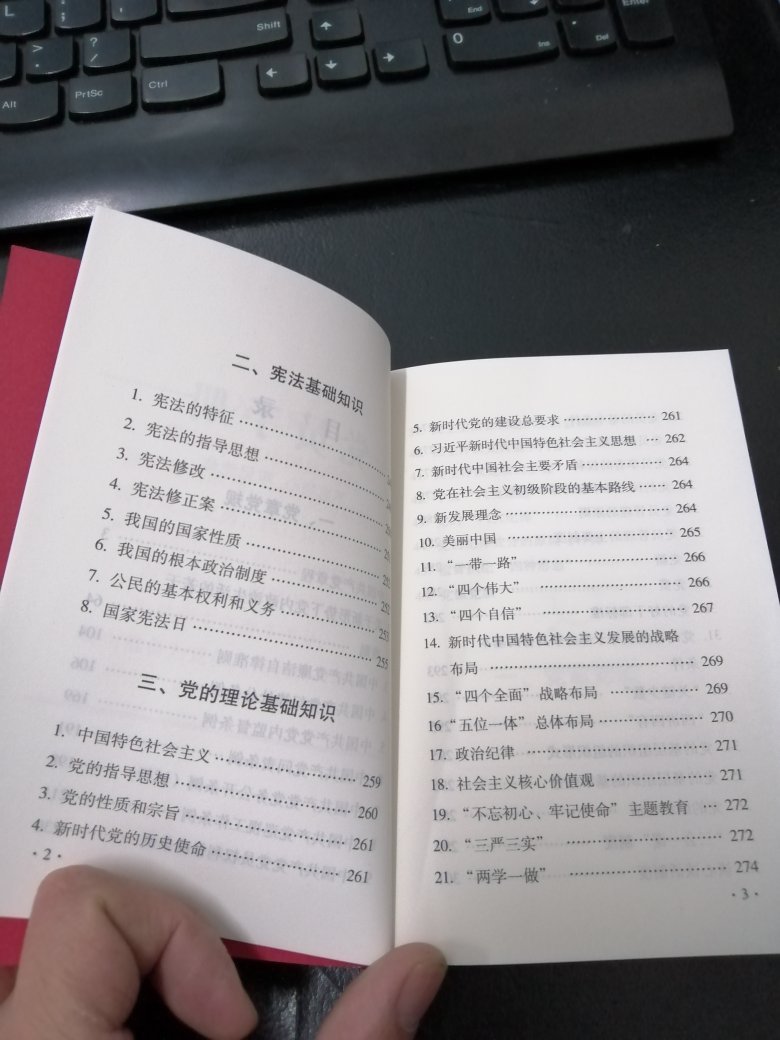 Shift
End
Enter
PrtSc
Ctrl
Alt
0
Ins
Del
二、宪法基础知识
1. 宪法的特征
2. 宪法的指导思想
3. 宪法修改
4. 宪法修正案
5. 我国的国家性质
6. 我国的根本政治制度
7. 公民的基本权利和义务
8. 国家宪法日 255
三、党的理论基础知识
1. 中国特色社会主义 259
2. 党的指导思想 260
3. 党的性质和宗旨 261
4. 新时代党的历史使命 261
·2·
5. 新时代党的建设总要求 261
6. 习近平新时代中国特色社会主义思想 262
7. 新时代中国社会主要矛盾 264
8. 党在社会主义初级阶段的基本路线 264
9. 新发展理念 264
10. 美丽中国 265
11. “一带一路” 266
12. “四个伟大” 266
13. “四个自信” 267
14. 新时代中国特色社会主义发展的战略
布局 269
15. “四个全面” 战略布局 269
16 “五位一体” 总体布局 270
17. 政治纪律 271
18. 社会主义核心价值观 271
19. “不忘初心、牢记使命” 主题教育 272
20. “三严三实” 272
21. “两学一做” 274
·3·